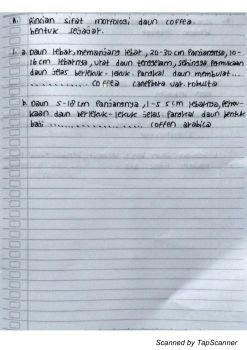 A. Rincian sifat morfologi daun coffea.
bentuk sejajar.
1. a. Daun lebat, memanjang lebat, 20-30 cm Panjangnya, 10-
16 cm lebatnya, urat daun tenggelam, sehingga Permukaan
daun jelas berlekuk-lekuk. Pangkal daun membulat...
.................. coffea canephora var. robusta
b. Daun 5-18 cm Panjangnya, 1-5 5 cm lebatnya, Permu-
kaan daun berlekuk-lekuk jelas Pangkal daun bentuk
baji .................. coffea arabica
Scanned by TapScanner